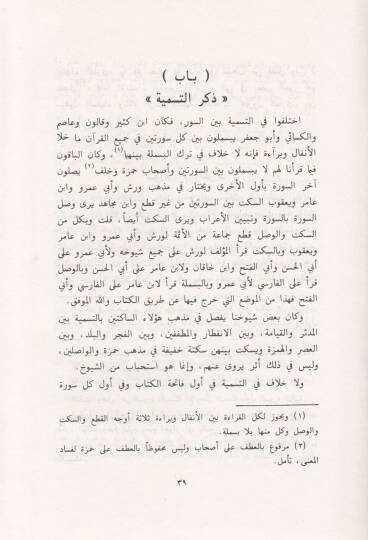 ( بـاب )
« ذكر التسمية »
اختلفوا في التسمية بين السور، فكان ابن كثير وقالون وعاصم
والكسائي وأبو جعفر يبسملون بين كل سورتين في جميع القرآن ما خلا
الأنفال وبراءة فإنه لا خلاف في ترك البسملة بينها(١)، وكان الباقون
فيما قرأنا لهم لا يبسملون بين السورتين وأصحاب حمزة وخلف(٢) يصلون
آخر السورة بأول الأخرى ويختار في مذهب ورش وأبي عمرو وابن
عامر ويعقوب السكت بين السورتين من غير قطع وابن مجاهد يرى وصل
السورة بالسورة وتبيين الأعراب ويرى السكت أيضاً، قلت وبكل من
السكت والوصل قطع جماعة من الأئمة لورش وأبي عمرو وابن عامر
ويعقوب وبالسكت قرأ المؤلف لورش على جميع شيوخه ولأبي عمرو على
أبي الحسن وأبي الفتح وابن خاقان ولابن عامر على أبي الحسن وبالوصل
قرأ على الفارسي لأبي عمرو وبالبسملة قرأ لابن عامر على الفارسي وأبي
الفتح فهذا من الموضع التي خرج فيها عن طريق الكتاب والله الموفق.
وكان بعض شيوخنا يفصل في مذهب هؤلاء الساكتين بالتسمية بين
المدثر والقيامة، وبين الانفطار والمطففين، وبين الفجر والبلد، وبين
العصر والهمزة ويسكت بينهن سكتة خفيفة في مذهب حمزة والواصلين،
وليس في ذلك أثر يروى عنهم، وإنما هو استحباب من الشيوخ.
ولا خلاف في التسمية في أول فاتحة الكتاب وفي أول كل سورة
(١) ويجوز لكل القراءة بين الأنفال وبراءة ثلاثة أوجه القطع والسكت
والوصل وكل منها بلا بسملة.
(٢) مرفوع بالعطف على أصحاب وليس محفوظاً بالعطف على حمزة لفساد
المعنى، تأمل.
٣٩